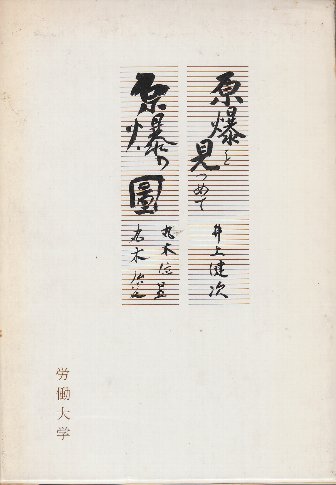 原爆を見つめて
井上健次
原爆の圖
丸木位里
丸木俊
労働大学